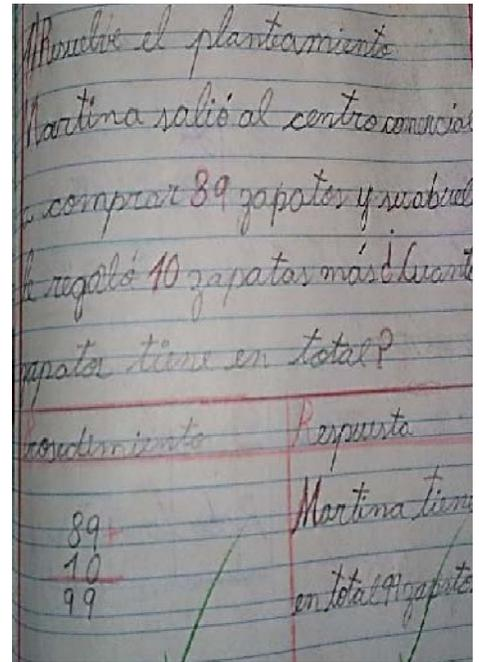 1) Resuelve el planteamiento
Martina salió al centro comercial
a comprar 89 zapatos y su abuel
le regaló 10 zapatos más ¿Cuant
zapatos tiene en total?
Prosedimiento
89+
10
99
Respuesta
Martina tiene
en total 99 zapatos